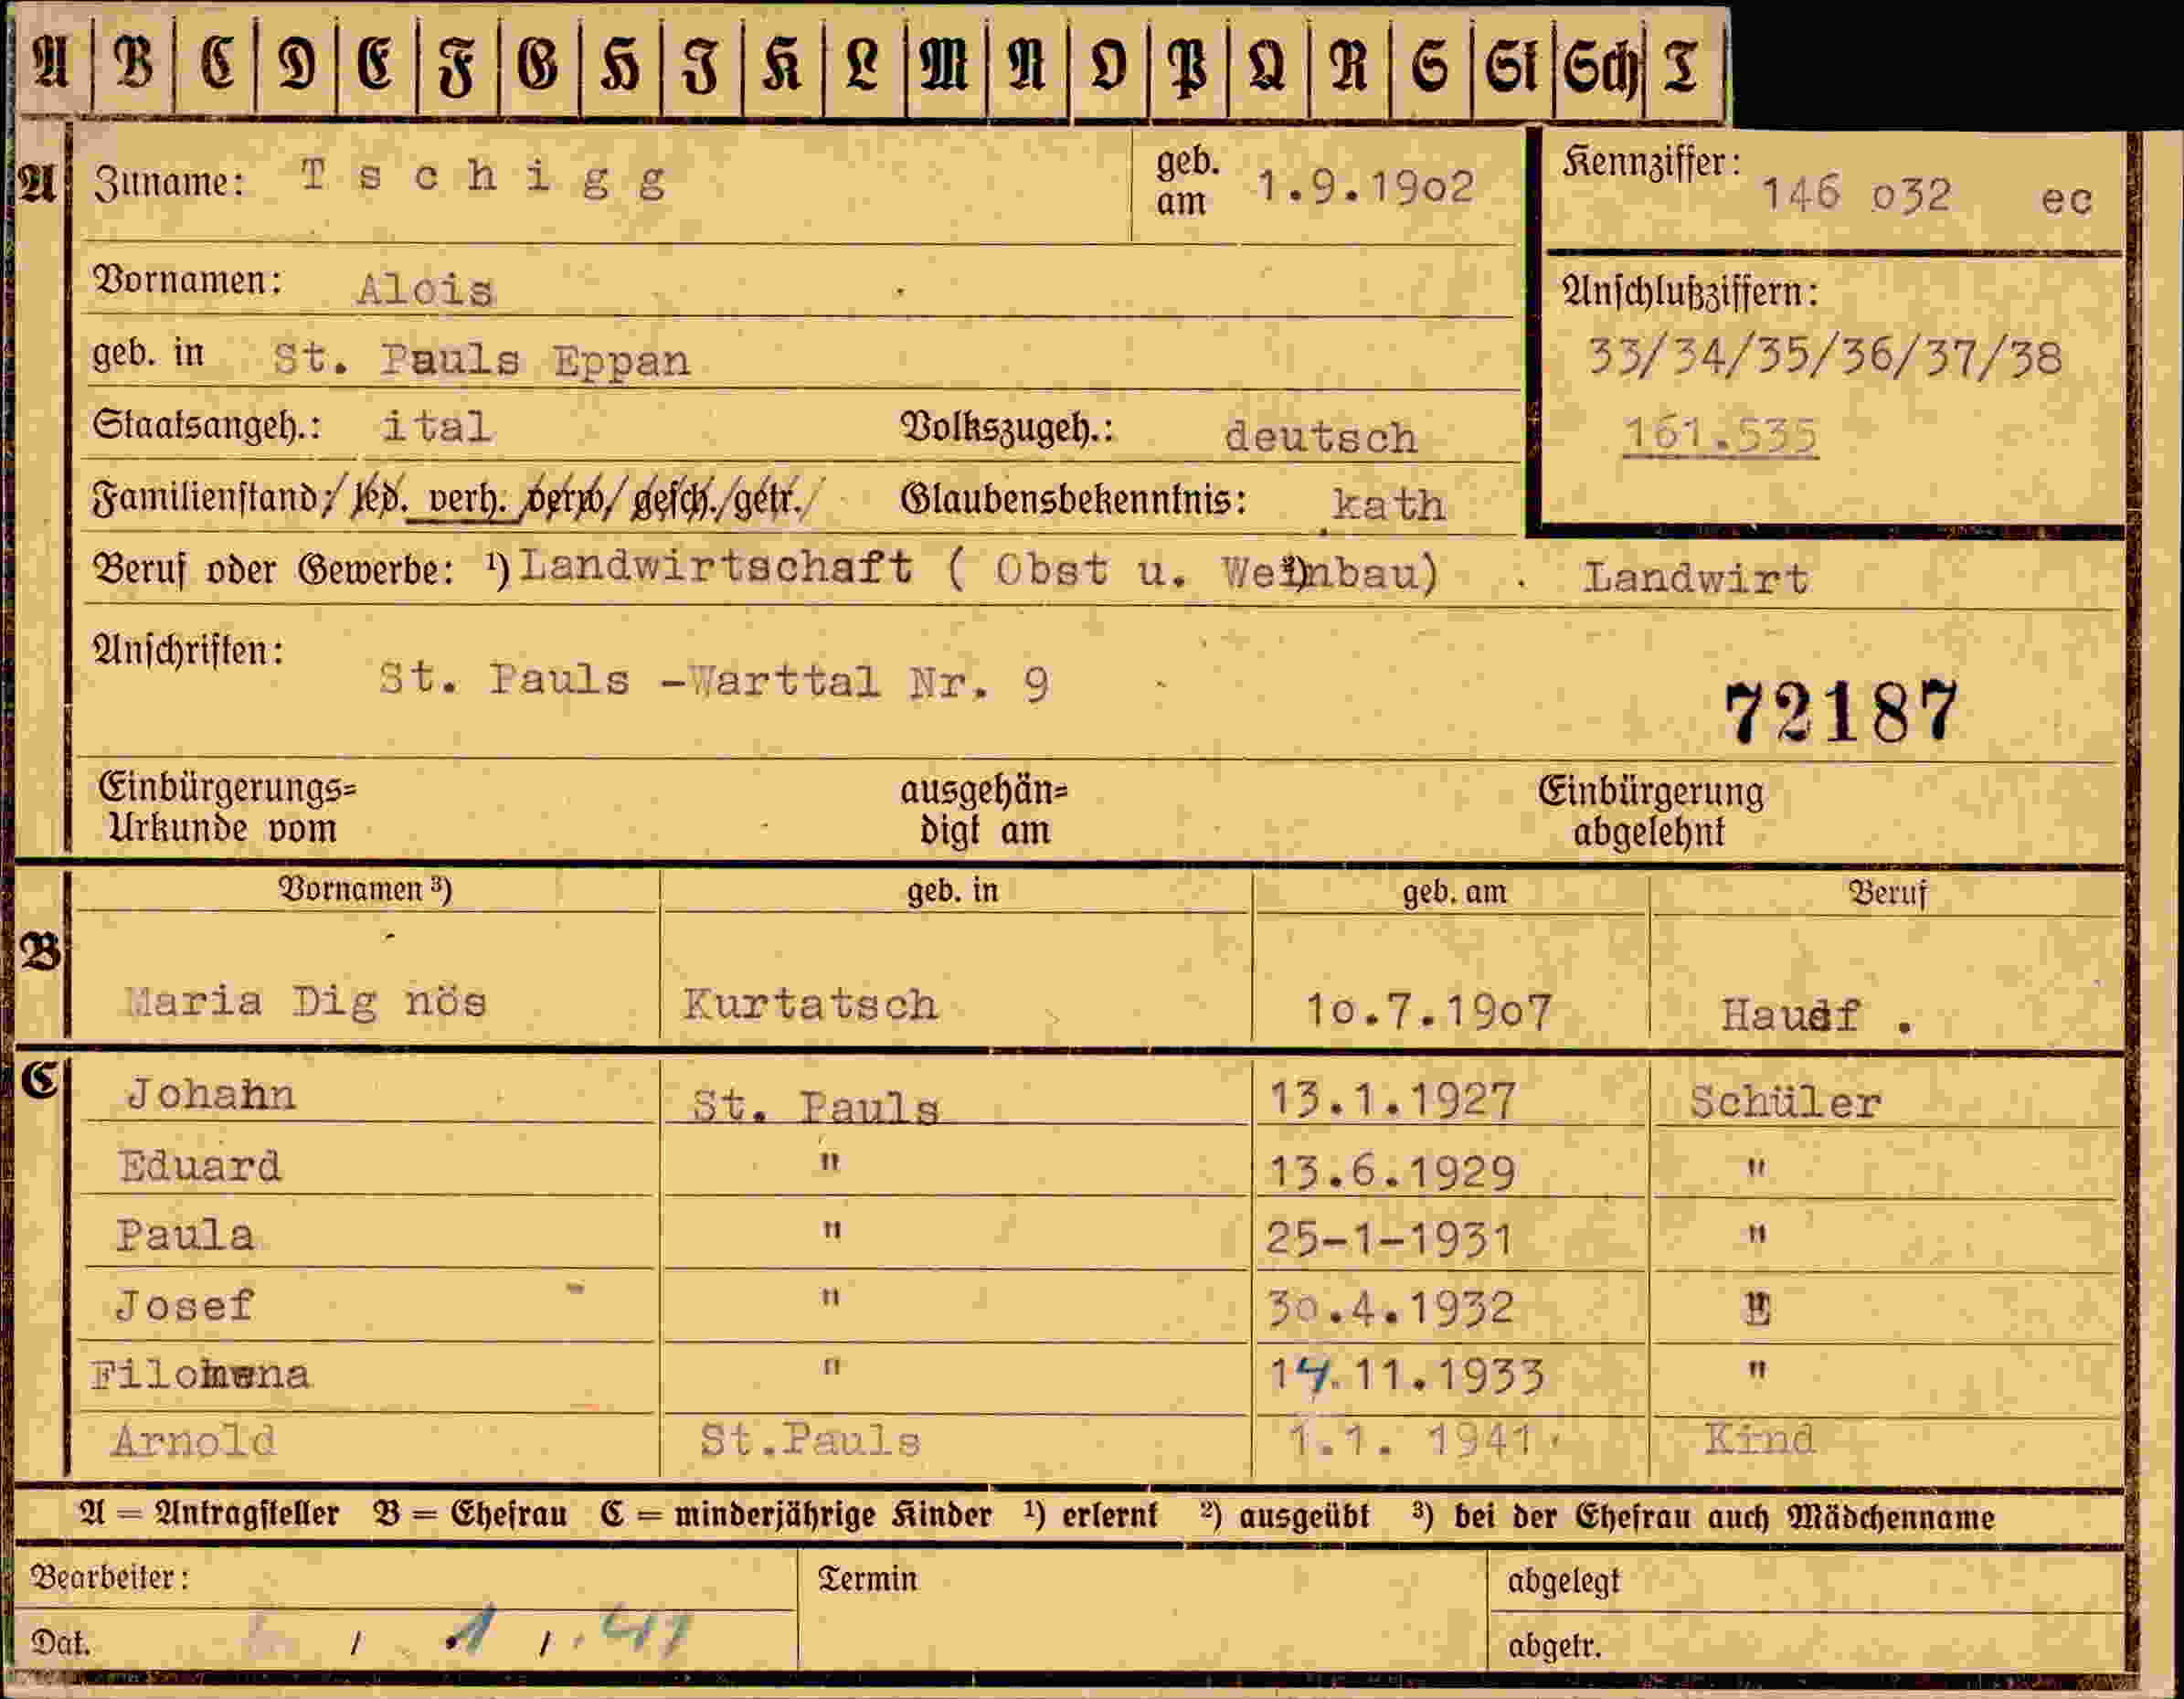 A B C D E F G H J K L M N O P Q R S St Sch T
A Zuname: Tschigg geb. am 1.9.1902 Kennziffer: 146 032 ec
Vornamen: Alois Anschlußziffern:
geb. in St. Pauls Eppan 33/34/35/36/37/38
Staatsangeh.: ital Volkszugeh.: deutsch 161.535
Familienstand: led. verh. verw. gesch./getr. Glaubensbekenntnis: kath
Beruf oder Gewerbe: ¹) Landwirtschaft ( Obst u. Weinbau) ²) Landwirt
Anschriften:
St. Pauls -Warttal Nr. 9 72187
Einbürgerungs= ausgehän= Einbürgerung
Urkunde vom digt am abgelehnt
Vornamen ³) geb. in geb. am Beruf
B
Maria Dig nös Kurtatsch 10.7.1907 Hausf .
C Johahn St. Pauls 13.1.1927 Schüler
Eduard " 13.6.1929 "
Paula " 25-1-1931 "
Josef " 30.4.1932 "
Filomena " 14.11.1933 "
Arnold St.Pauls 1.1. 1941. Kind
A = Antragsteller B = Ehefrau C = minderjährige Kinder ¹) erlernt ²) ausgeübt ³) bei der Ehefrau auch Mädchenname
Bearbeiter: Termin abgelegt
Dat. / .1 / .41 abgetr.